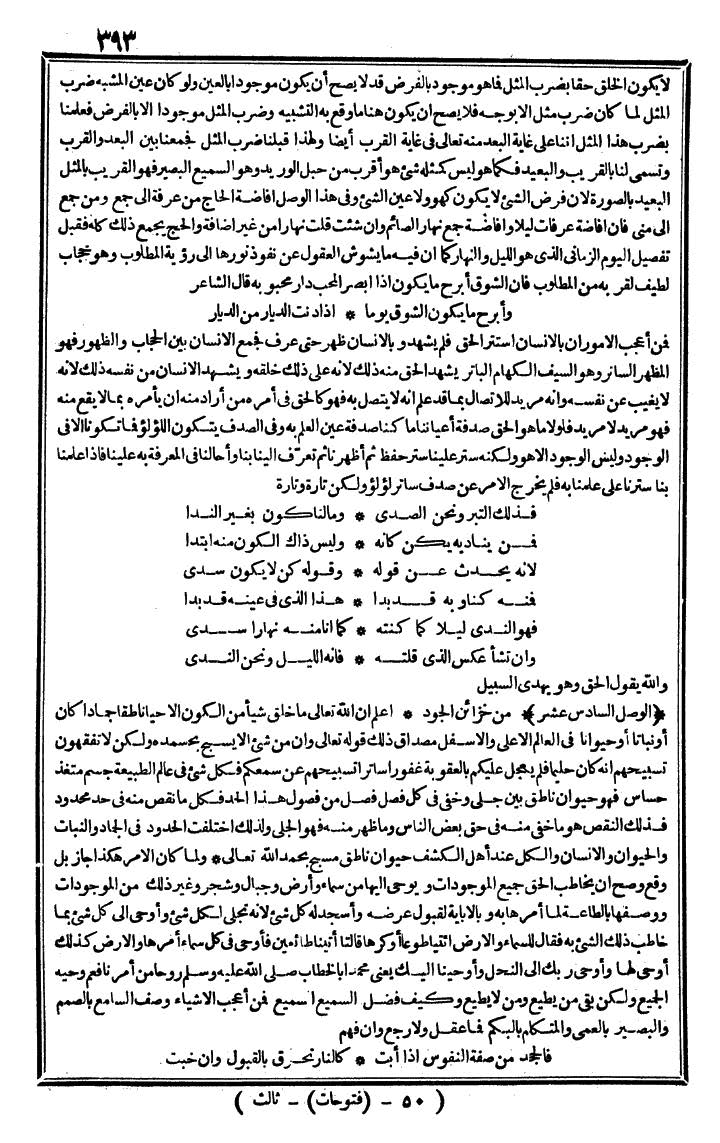 ٣٩٣
لا يكون الخلق حقا بضرب المثل فما هو موجود بالفرض قد لا يصح أن يكون موجودا بالعين ولو كان عين المشبه ضرب
المثل لما كان ضرب مثل الا بوجه فلا يصح ان يكون هنا ما وقع به التشبيه وضرب المثل موجودا الا بالفرض فعلمنا
بضرب هذا المثل اننا على غاية البعد منه تعالى في غاية القرب أيضا ولهذا قبلنا ضرب المثل فجمعنا بين البعد والقرب
وتسمى لنا بالقريب والبعيد فكما هو ليس كمثله شئ هو أقرب من حبل الوريد وهو السميع البصير فهو القريب بالمثل
البعيد بالصورة لان فرض الشئ لا يكون كهو ولا عين الشئ وفى هذا الوصل افاضة الحاج من عرفة الى جمع ومن جمع
الى منى فان افاضة عرفات ليلا وافاضة جمع نهار الصائم وان شئت قلت نهارا من غير اضافة والحج يجمع ذلك كله فقبل
تفصيل اليوم الزمانى الذى هو الليل والنهار كما ان فيه ما يشوش العقول عن نفوذ نورها الى رؤية المطلوب وهو حجاب
لطيف لقربه من المطلوب فان الشوق أبرح ما يكون اذا ابصر المحب دار محبوبه قال الشاعر
وأبرح ما يكون الشوق يوما * اذا دنت الديار من الديار
فمن أعجب الامور ان بالانسان استتر الحق فلم يشهد و بالانسان ظهر حتى عرف فجمع الانسان بين الحجاب والظهور فهو
المظهر الساتر وهو السيف الكهام الباتر يشهد الحق منه ذلك لانه على ذلك خلقه ويشهد الانسان من نفسه ذلك لانه
لا يغيب عن نفسه وانه مريد للاتصال بما قد علم انه لا يتصل به فهو كالحق فى أمره من أراد منه ان يأمره بما لا يقع منه
فهو مريد لا مريد فلولا ما هو الحق صدفة أعياننا ما كنا صدفة عين العلم به وفى الصدف يتكون اللؤلؤ فما تكونا الا فى
الوجود وليس الوجود الا هو ولكنه ستر علينا ستر حفظ ثم أظهرنا ثم تعرف الينا بنا وأحالنا فى المعرفة به علينا فاذا علمنا
بنا سترنا على علمنا به فلم يخرج الامر عن صدف ساتر لؤلؤ ولكن تارة وتارة
فذلك التبر ونحن الصدى * وما لنا كون بغير الندا
فمن يناديه يكن كانه * وليس ذاك الكون منه ابتدا
لانه يحدث عن قوله * وقوله كن لا يكون سدى
فمنه كنا وبه قد بدا * هذا الذى فى عينه قد بدا
فهو الندى ليلا كما كنته * كما انا منه نهارا سدى
وان تشأ عكس الذى قلته * فانه الليل ونحن الندى
والله يقول الحق وهو يهدى السبيل
﴿الوصل السادس عشر﴾ من خزائن الجود * اعلم ان الله تعالى ما خلق شيأ من الكون الا حيا ناطقا جمادا كان
أو نباتا أو حيوانا فى العالم الاعلى والاسفل مصداق ذلك قوله تعالى وان من شئ الا يسبح بحمده ولكن لا تفقهون
تسبيحهم انه كان حليما فلم يعجل عليكم بالعقوبة غفورا ساترا تسبيحهم عن سمعكم فكل شئ فى عالم الطبيعة جسم متغذ
حساس فهو حيوان ناطق بين جلى وخفى فى كل فصل فصل من فصول هذا الحد فكل ما نقص منه فى حد محدود
فذلك النقص هو ما خفى منه فى حق بعض الناس وما ظهر منه فهو الجلى ولذلك اختلفت الحدود فى الجماد والنبات
والحيوان والانسان والكل عند أهل الكشف حيوان ناطق مسبح بحمد الله تعالى * ولما كان الامر هكذا جاز بل
وقع وصح ان يخاطب الحق جميع الموجودات و يوحى اليها من سماء وأرض وجبال وشجر وغير ذلك من الموجودات
ووصفها بالطاعة لما أمرها به و بالاباية لقبول عرضه وأسجد له كل شئ لانه تجلى لكل شئ وأوحى الى كل شئ بما
خاطب ذلك الشئ به فقال للسماء والارض ائتيا طوعا أو كرها قالتا أتينا طائعين فأوحى فى كل سماء أمرها والارض كذلك
أوحى لها وأوحى ربك الى النحل وأوحينا اليك يعنى محمدا بالخطاب صلى الله عليه وسلم روحا من أمرنا فعم وحيه
الجميع ولكن بقى من يطيع ومن لا يطيع وكيف فضل السميع السميع فمن أعجب الاشياء وصف السامع بالصمم
والبصير بالعمى والمتكلم بالبكم فما عقل ولا رجع وان فهم
فالجد من صفة النفوس اذا أبت * كالنار تحرق بالقبول وان خبت
( ٥٠ - (فتوحات) - ثالث )